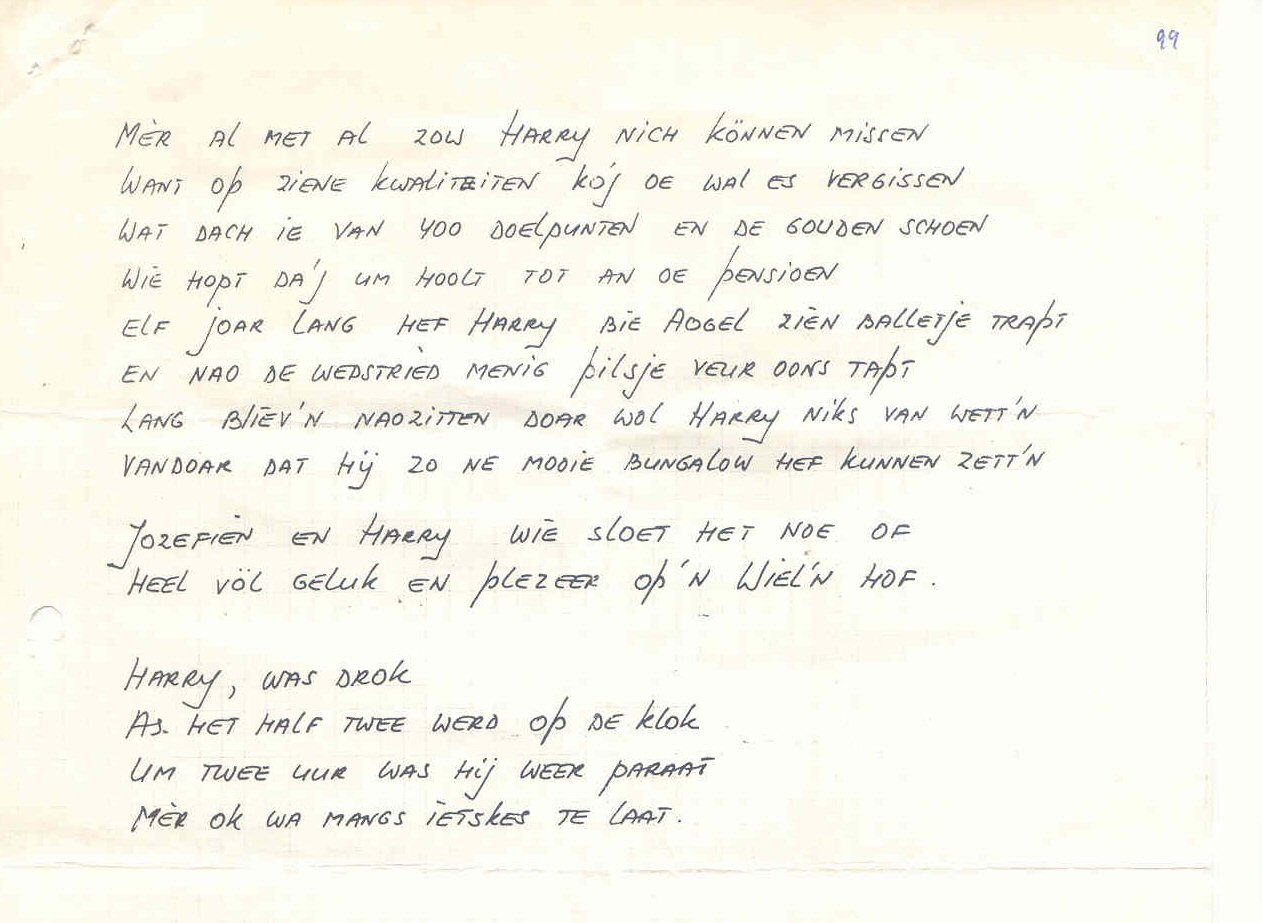 99
Mèr al met al zow Harry nich können missen
Want op ziene kwaliteiten kó'j oe wal es vergissen
Wat dach ie van 400 doelpunten en de gouden schoen
Wie hopt da'j um hoolt tot an oe pensioen
Elf joar lang hef Harry bie Aogel zien balletje trapt
En nao de wedstrièd menig pilsje veur oons tapt
Lang bliev'n naozitten doar wol Harry niks van wett'n
Vandoar dat hij zo ne mooie bungalow hef kunnen zett'n
Jozefièn en Harry wie sloet het noe of
Heel völ geluk en plezeer op 'n Wiel'n hof.
Harry, was drok
As het half twee werd op de klok
Um twee uur was hij weer paraat
Mèr ok wa mangs ietskes te laat.